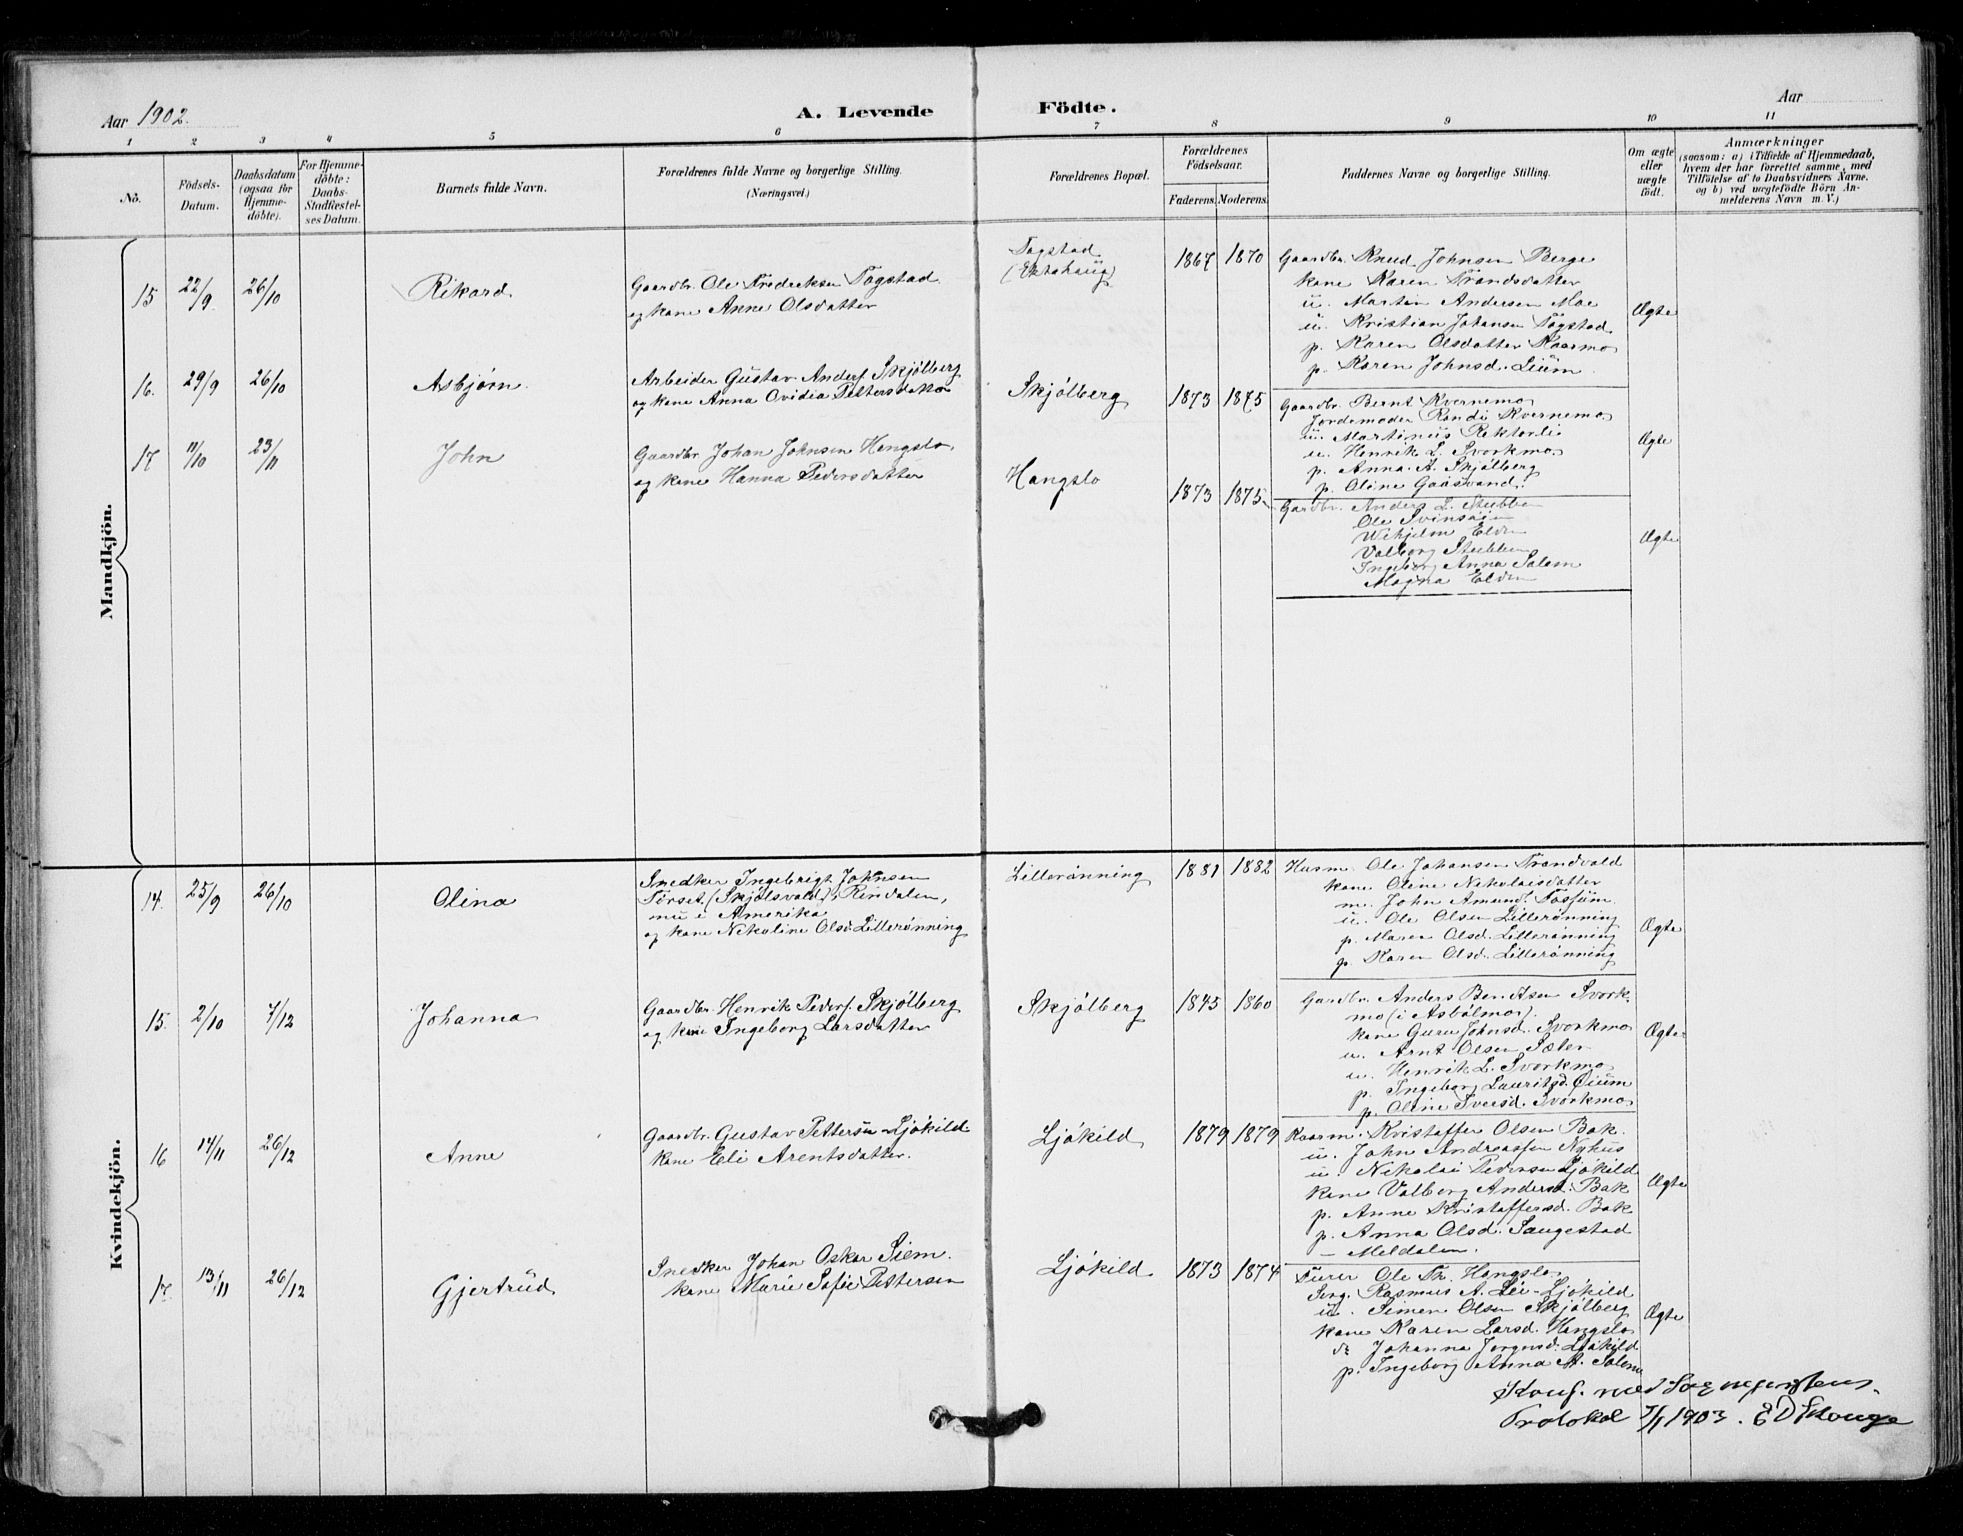 Aar 1902.
A. Levende Födte.
Aar
1 2 3 4 5 6 7 8 9 10 11
No.
Födsels-
Datum.
Daabsdatum
(ogsaa for
Hjemme-
döbte).
For Hjemme-
döbte:
Daabs-
Stadfæstel-
ses Datum.
Barnets fulde Navn.
Forældrenes fulde Navne og borgerlige Stilling.
(Næringsvei.)
Forældrenes Bopæl.
Forældrenes
Födselsaar.
Faderens. Moderens.
Faddernes Navne og borgerlige Stilling.
Om ægte
eller
uægte
födt.
Anmærkninger
(saasom: a) i Tilfælde af Hjemmedaab,
hvem der har forrettet samme, med
Tilföielse af to Daabsvidners Navne,
og b) ved uægtefödte Börn An-
melderens Navn m. V.)
Mandkjön.
15 22/9 26/10 Rikard
Gaardbr. Ole Fredriksen Togstad
og kone Anne Olsdatter
Togstad
1867 1870
Gaardbr. Knud Johnsen Berge
kone Karen Trondsdatter
u. Martin Andersen Moe
u. Kristian Johansen Togstad
p. Karen Olsdatter Kaarmo
p. Karen Johnsd. Lium
Ægte
16. 29/9 26/10 Asbjørn
Arbeider Gustav Anders. Skjølberg
og kone Anna Ovidia Pettersdatter
Skjølberg
1873 1875
Gaardbr. Bernt Kvernemo
Jordemoder Randi Kvernemo
u. Martinus Rektorli
u. Henrik L. Svorkmo
p. Anna A. Skjølberg
p. Oline Gaasvand.
Ægte
17 11/10 23/11 John
Gaardbr. Johan Johnsen Hongslo
og kone Hanna Pedersdatter
Hongslo
1873 1875
Gaardbr. Anders L. Stubbe
Ole Svinsøien
Vilhjelm Elden
Valborg Stubben
Ingeborg Anna Solem
Magna Elden
Ægte
Kvindekjön.
14. 25/9 26/10 Olina
Snedker Ingebrigt Johnsen
Tørset (Skjølsvold) i Rindalen,
nu i Amerika
og kone Nikoline Olsd. Lillerønning
Lillerønning
1881 1882
Husm. Ole Johansen Trondvold
kone Oline Nikolaisdatter
m. John Amund. Fossum
u. Ole Olsen Lillerønning
p. Maren Olsd. Lillerønning
p. Karen Olsd. Lillerønning
Ægte
15. 2/10 7/12 Johanna
Gaardbr. Henrik Peders. Skjølberg
og kone Ingeborg Larsdatter
Skjølberg
1845 1860
Gaardbr. Anders Bentsen Svork-
mo (i Asbølmo).
kone Guru Johnsd. Svorkmo
u. Arnt Olsen Sæter
u. Henrik L. Svorkmo
p. Ingeborg Lauritsd. Øium
p. Oline Iversd. Svorkmo
Ægte
16 14/11 26/12 Anne
Gaardbr. Gustav Pettersen Ljøkild
kone Eli Arentsdatter.
Ljøkild
1879 1879
Kaarm. Kristoffer Olsen Bak.
u. John Andreassen Nyhus
u. Nikolai Pedersen Ljøkild
kone Valborg Andersd. Bak
p. Anne Kristoffersd. Bak
p. Anna Olsd. Saugestad
- Meldalen.
Ægte
17. 13/11 26/12 Gjertrud
Snedker Johan Oskar Siem.
kone Marie Sofie Pettersen
Ljøkild
1873 1874
Furer Ole Th. Hongslo
Serg. Rasmus A. Lei-Ljøkild
u. Simen Olsen Skjølberg
kone Karen Larsd. Hongslo
do Johanna Jørgensd. Ljøkild
p. Ingeborg Anna M. Solem
Ægte
Konf. med Sognepræstens
Protokol 7/1 1903.